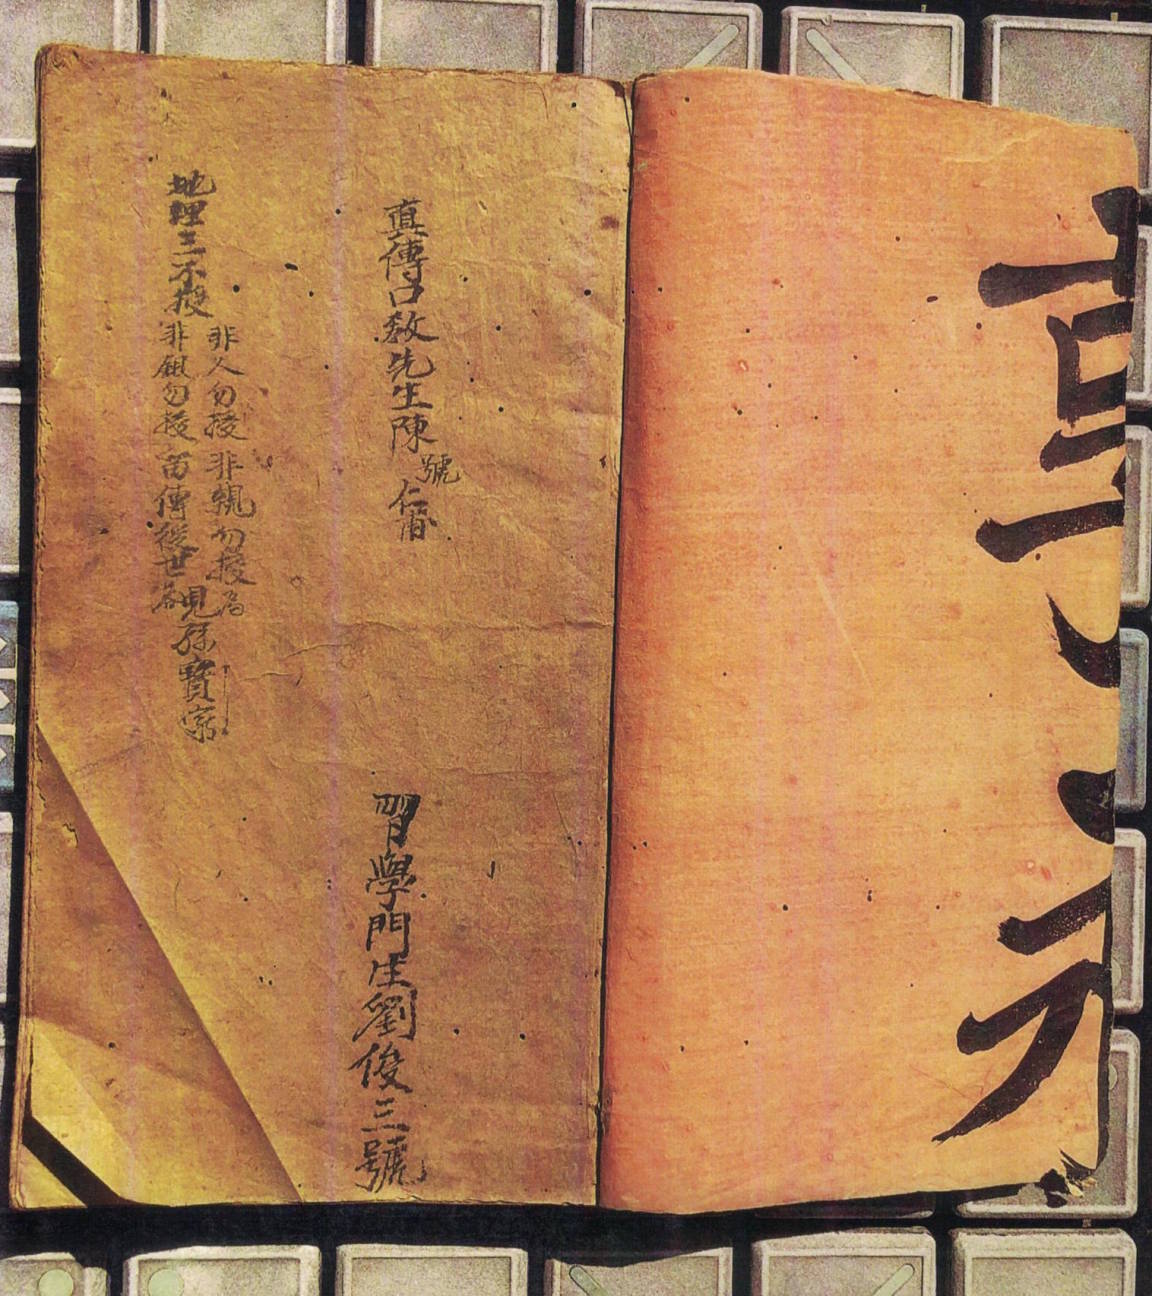 真傳口教先生陳號仁
習學門生劉俊三號
地理三不授
非人勿授 非親勿授 為
非銀勿授 留傳後世
兒孫寶